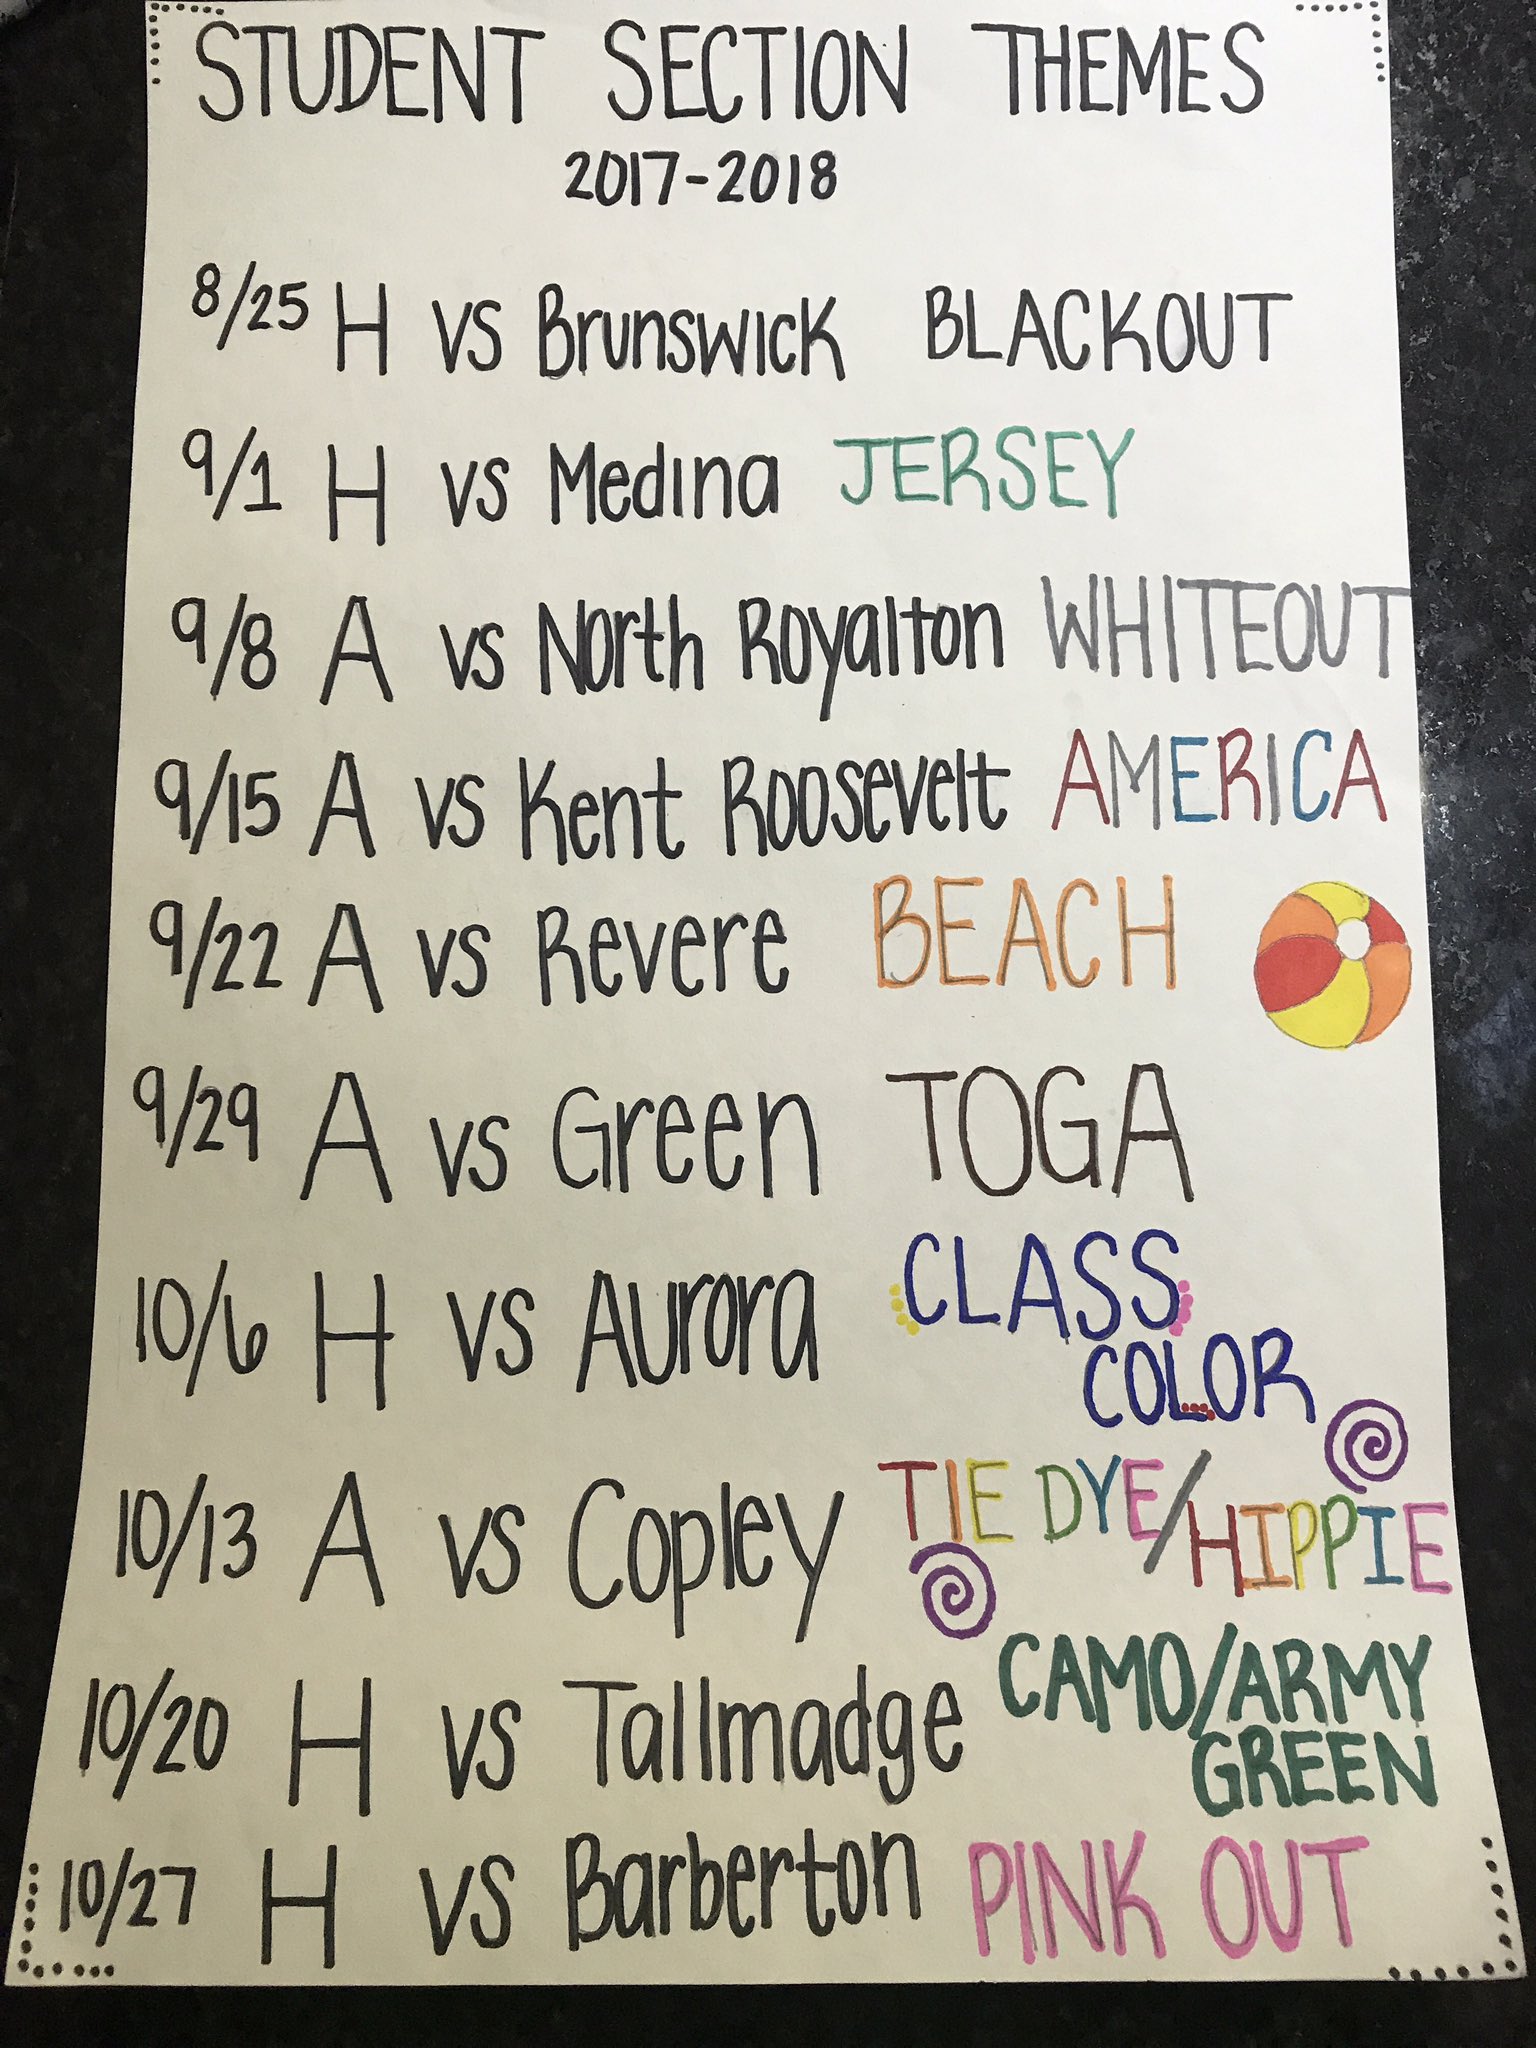 STUDENT SECTION THEMES
2017-2018
8/25 H vs Brunswick BLACKOUT
9/1 H vs Medina JERSEY
9/8 A vs North Royalton WHITEOUT
9/15 A vs Kent Roosevelt AMERICA
9/22 A vs Revere BEACH
9/29 A vs Green TOGA
10/6 H vs Aurora CLASS
COLOR
10/13 A vs Copley TIE DYE/HIPPIE
10/20 H vs Tallmadge CAMO/ARMY
GREEN
10/27 H vs Barberton PINK OUT